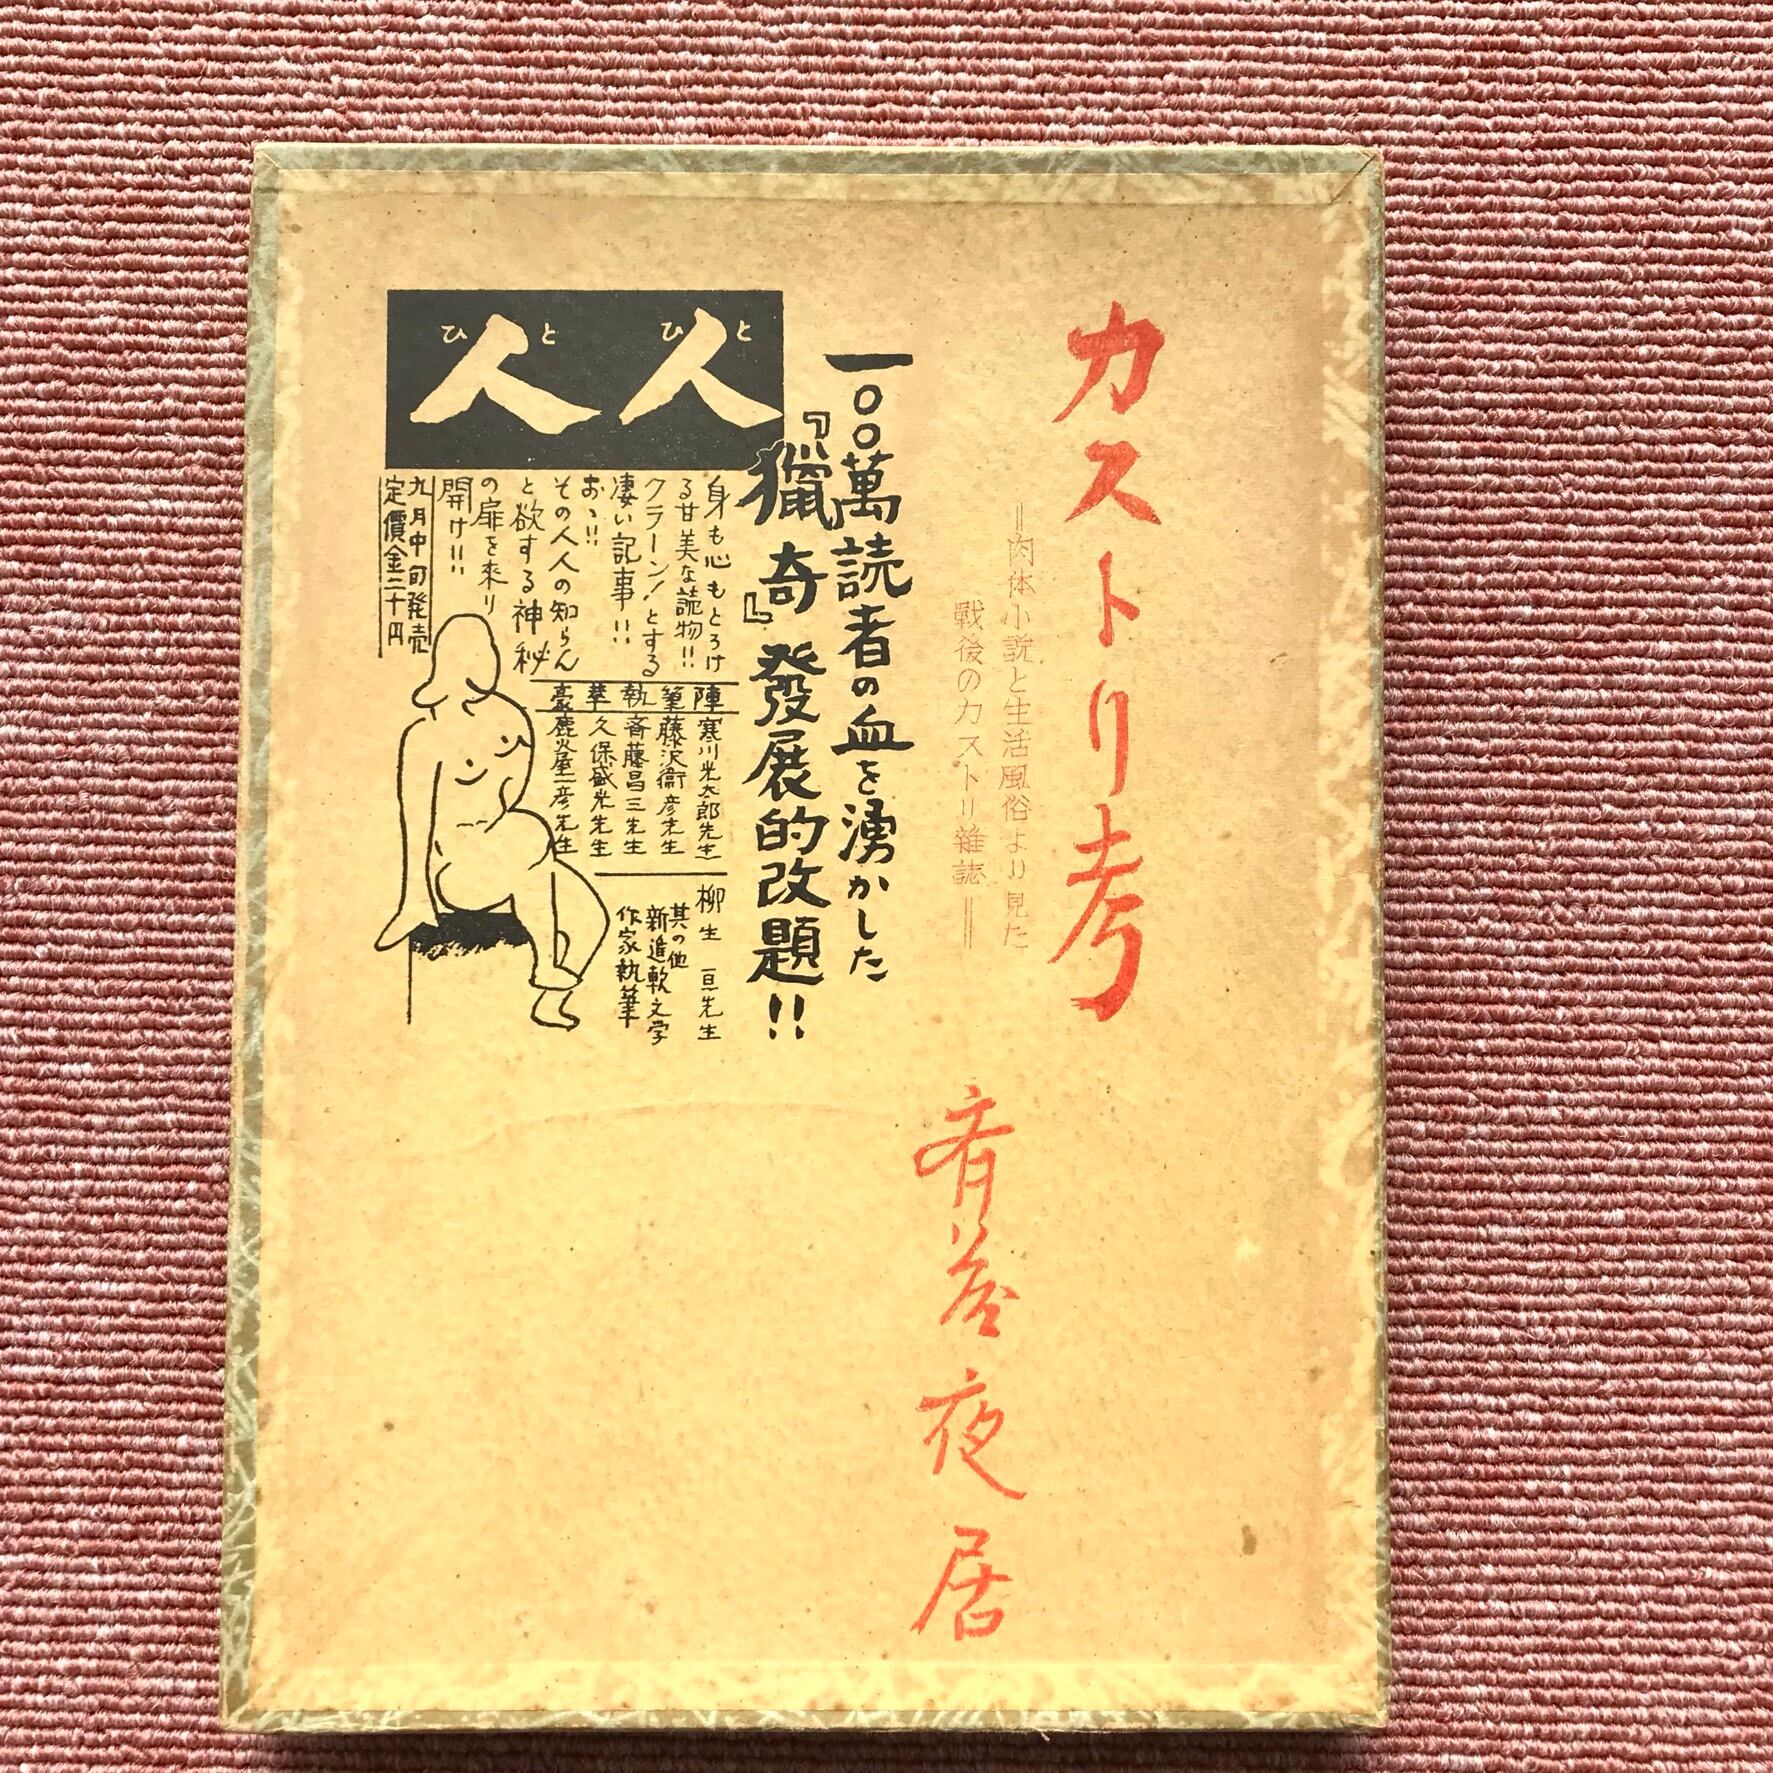 カストリ考
=肉体小説と生活風俗より見た
戰後のカストリ雜誌=
斉屋夜居
一〇〇萬読者の血を湧かした
『獵奇』發展的改題!!
人人
ひと ひと
身も心もとろけ
る甘美な読物!!
クラーン!とする
凄い記事!!
お、!!
その人人の知らん
と欲する神秘
の扉を来り
開け!!
九月中旬発売
定價金二十円
豪華執筆陣
寒川光太郎先生
藤沢衞彦先生
斉藤昌三先生
久保盛光先生
鹿火屋一彦先生
柳生亘先生
其の他
新進軟文学
作家執筆